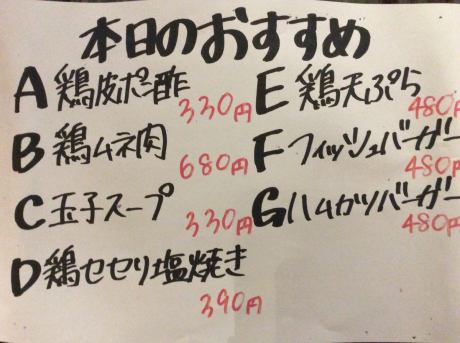 本日のおすすめ
A 鶏皮ポン酢
330円
B 鶏ムネ肉
680円
C 玉子スープ
330円
D 鶏セセリ塩焼き
390円
E 鶏天ぷら
480円
F フィッシュバーガー
480円
G ハムカツバーガー
480円